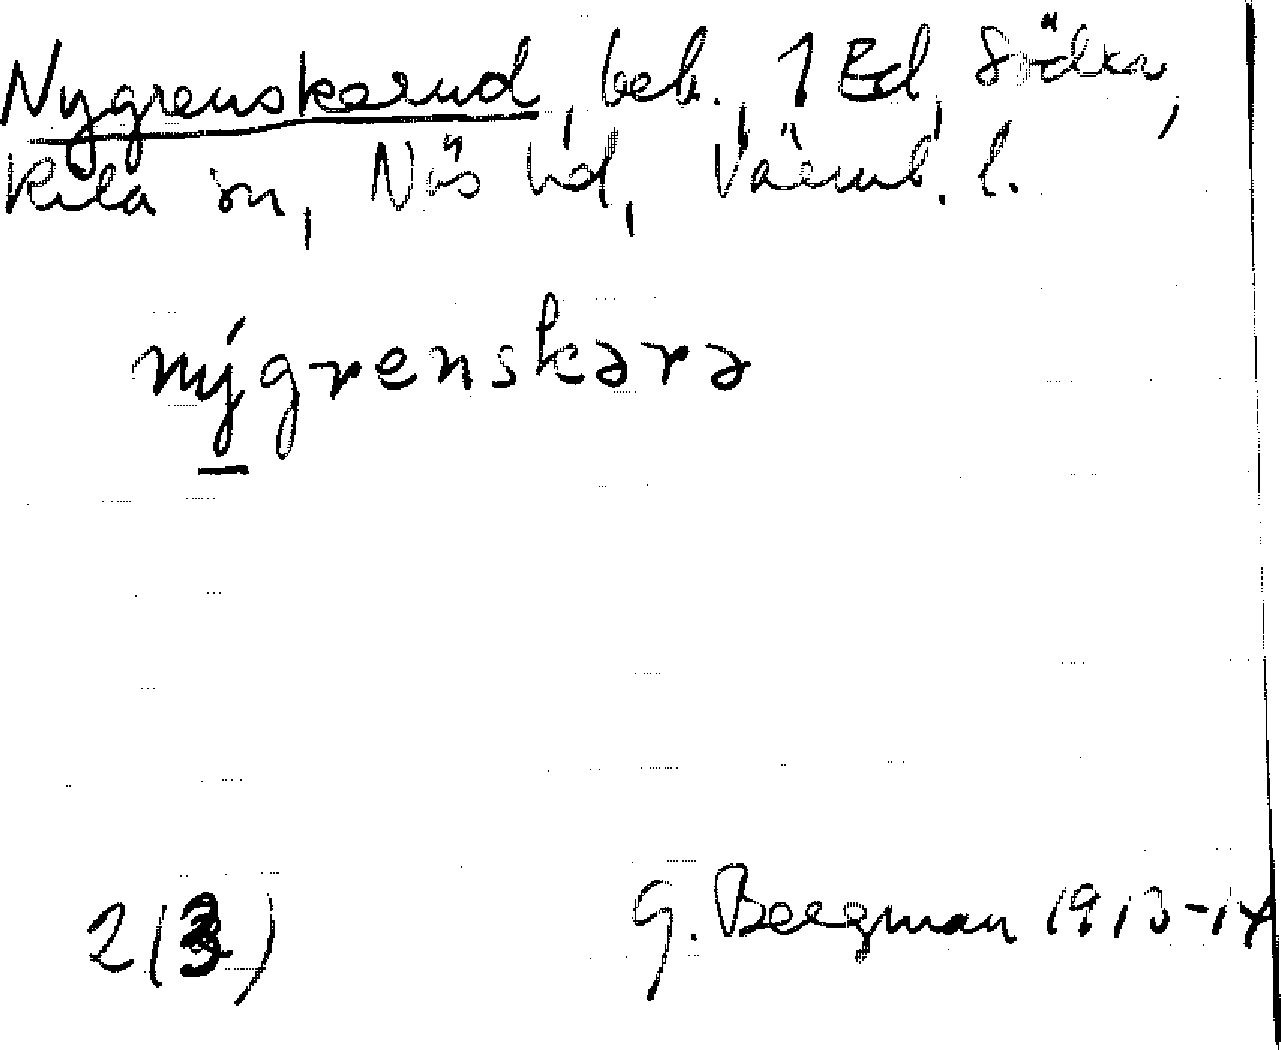 Nygrenskerud, beb., 1 Ed, Söder,
Kila sn, Näs hd, Värml. l.
nýgrenskərə
2(3)
G. Bergman 1913-14